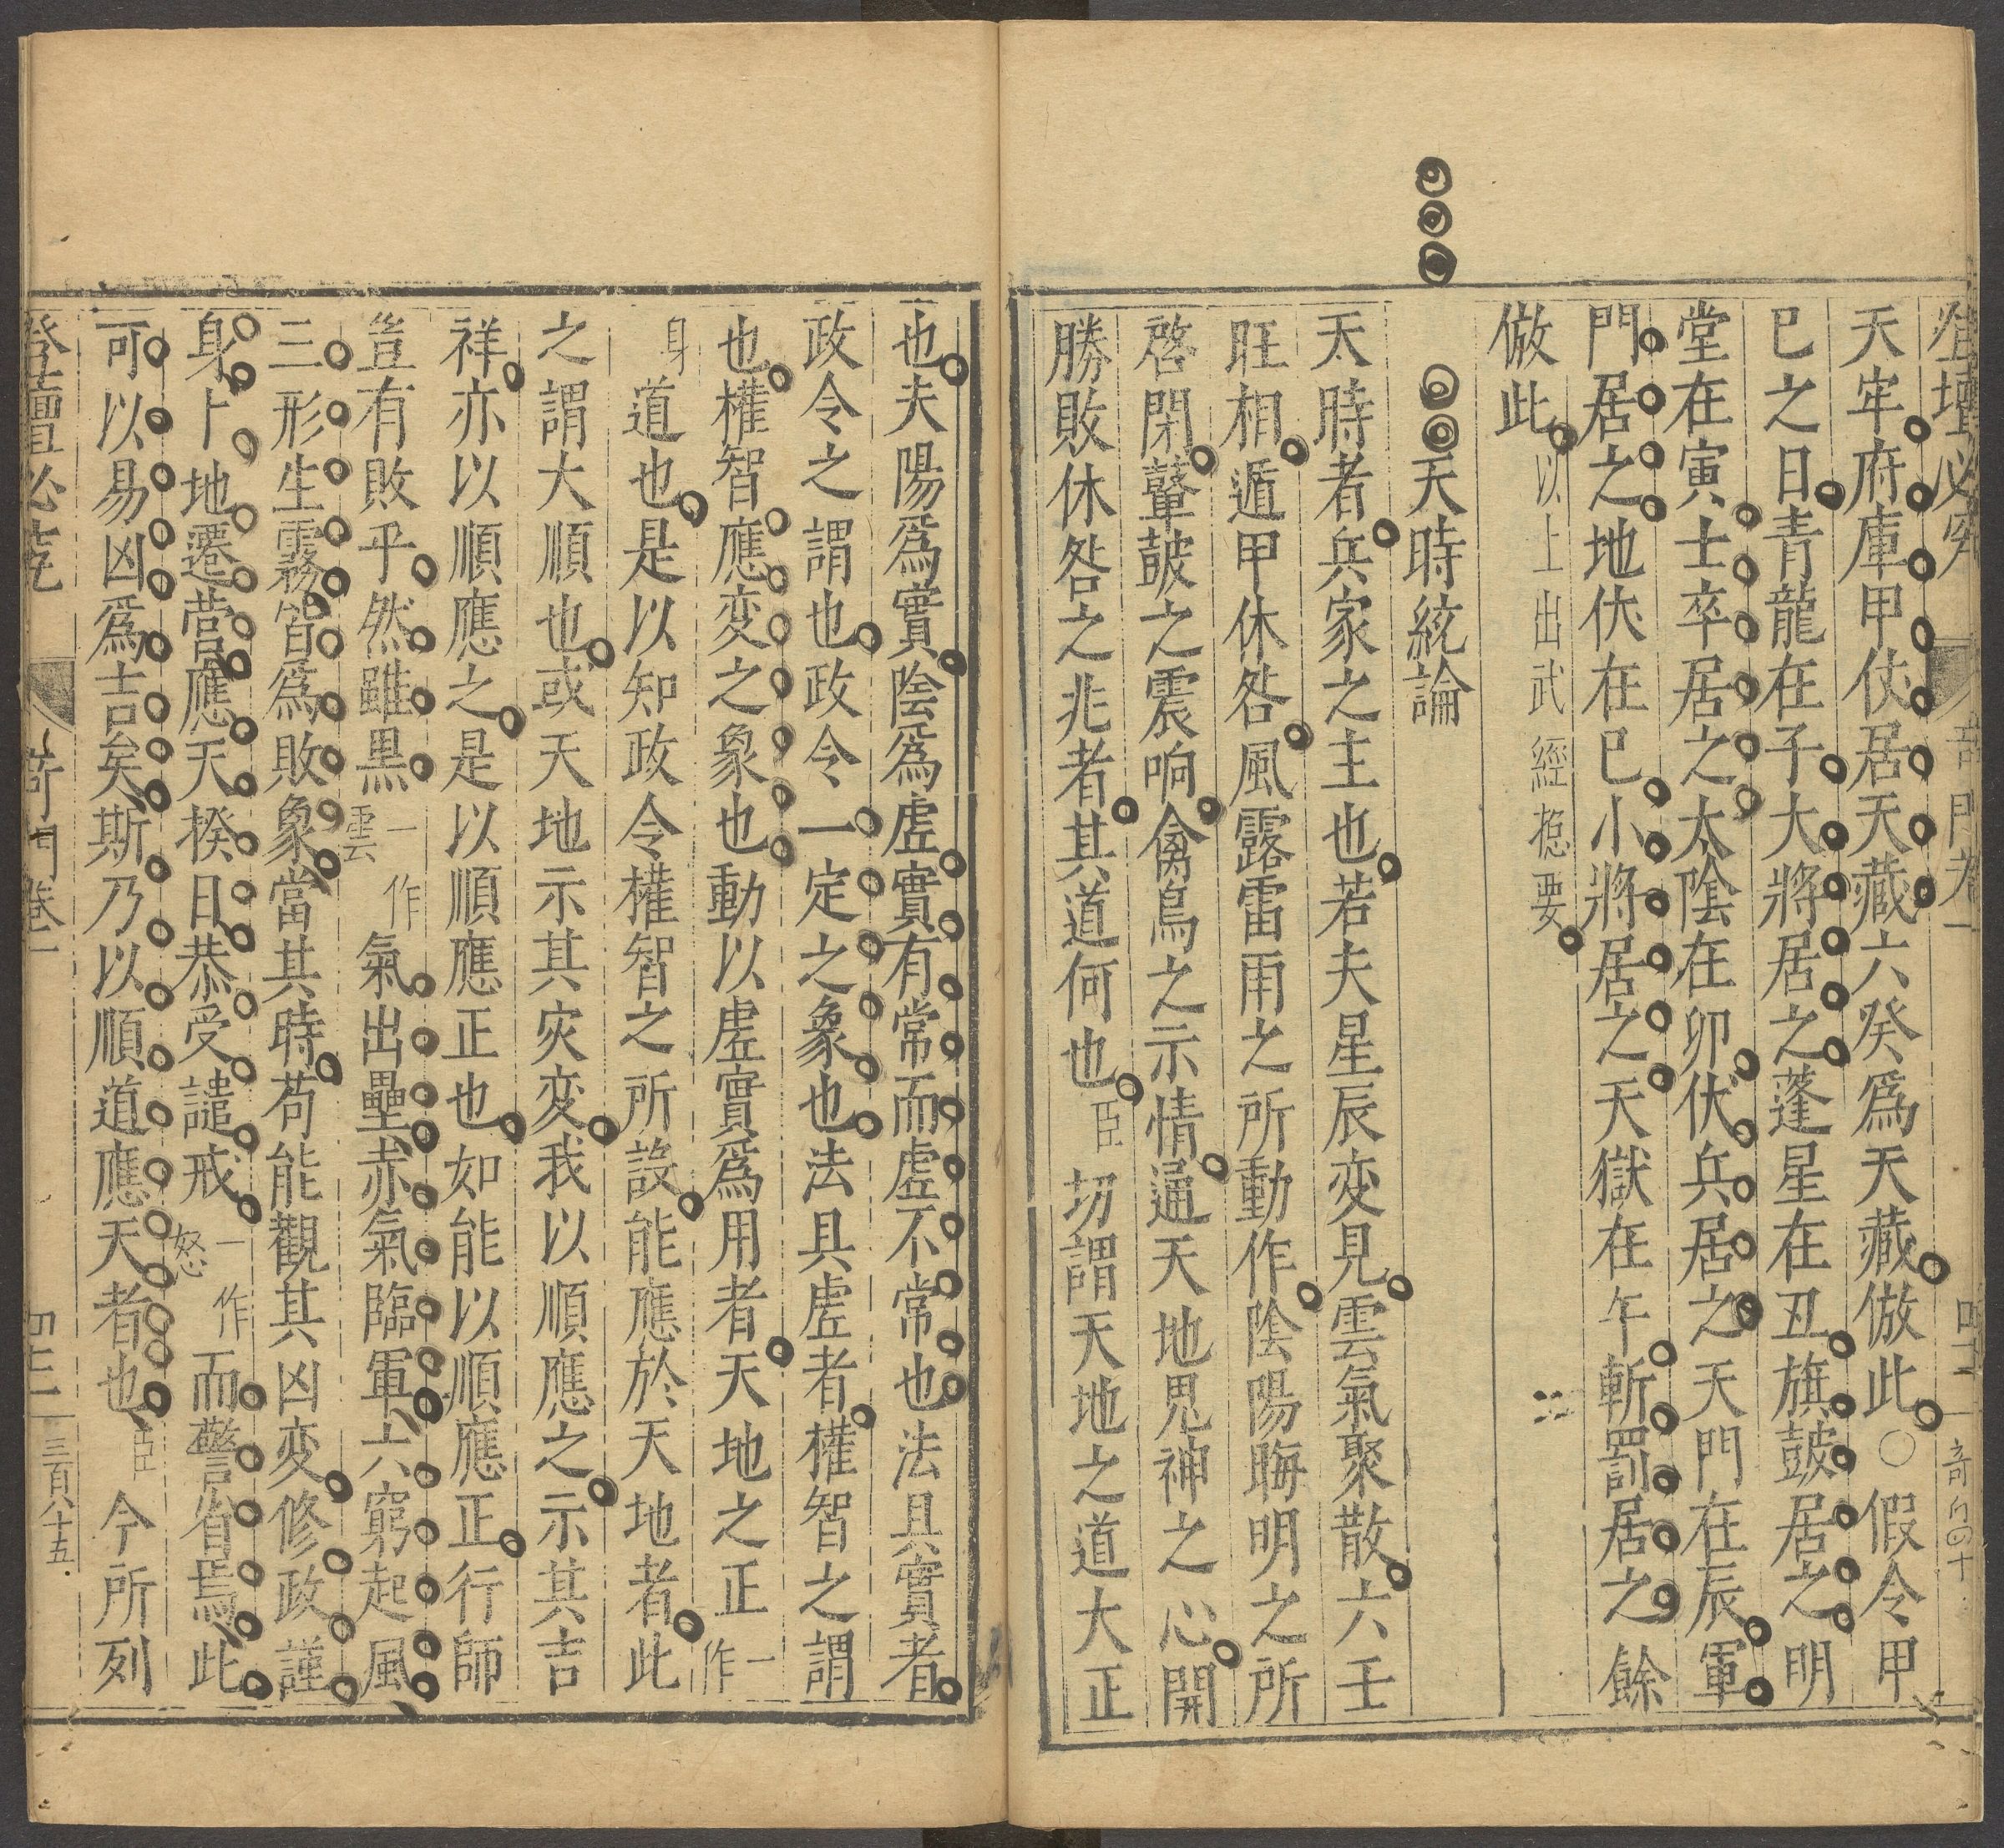 登壇必究 奇門卷一 四十二 奇門四十
天牢府庫甲仗居天藏六癸爲天藏倣此○假令甲
巳之日青龍在子大將居之蓬星在丑旗鼓居之明
堂在寅士卒居之太陰在卯伏兵居之天門在辰軍
門居之地伏在巳小將居之天獄在午斬罰居之餘
倣此以上出武經揔要
天時統論
天時者兵家之主也若夫星辰变見雲氣聚散六壬
旺相遁甲休咎風露雷雨之所動作陰陽晦明之所
啓閉鼙鼓之震响禽鳥之示情通天地鬼神之心開
勝敗休咎之兆者其道何也臣切謂天地之道大正
也夫陽爲實陰爲虗實有常而虗不常也法具實者
政令之謂也政令一定之象也法具虗者權智之謂
也權智應变之象也動以虗實爲用者天地之正一作
身道也是以知政令權智之所設能應於天地者此
之謂大順也或天地示其灾变我以順應之示其吉
祥亦以順應之是以順應正也如能以順應正行師
豈有敗乎然雖黒一作雲氣出壘赤氣臨軍六窮起風
三形生霧皆爲敗象當其時苟能觀其凶变修政謹
身卜地遷营應天揆日恭受譴戒一作怒而警省焉此
可以易凶爲吉矣斯乃以順道應天者也臣今所列
登壇必究 奇門卷一 四十二 三百八十五